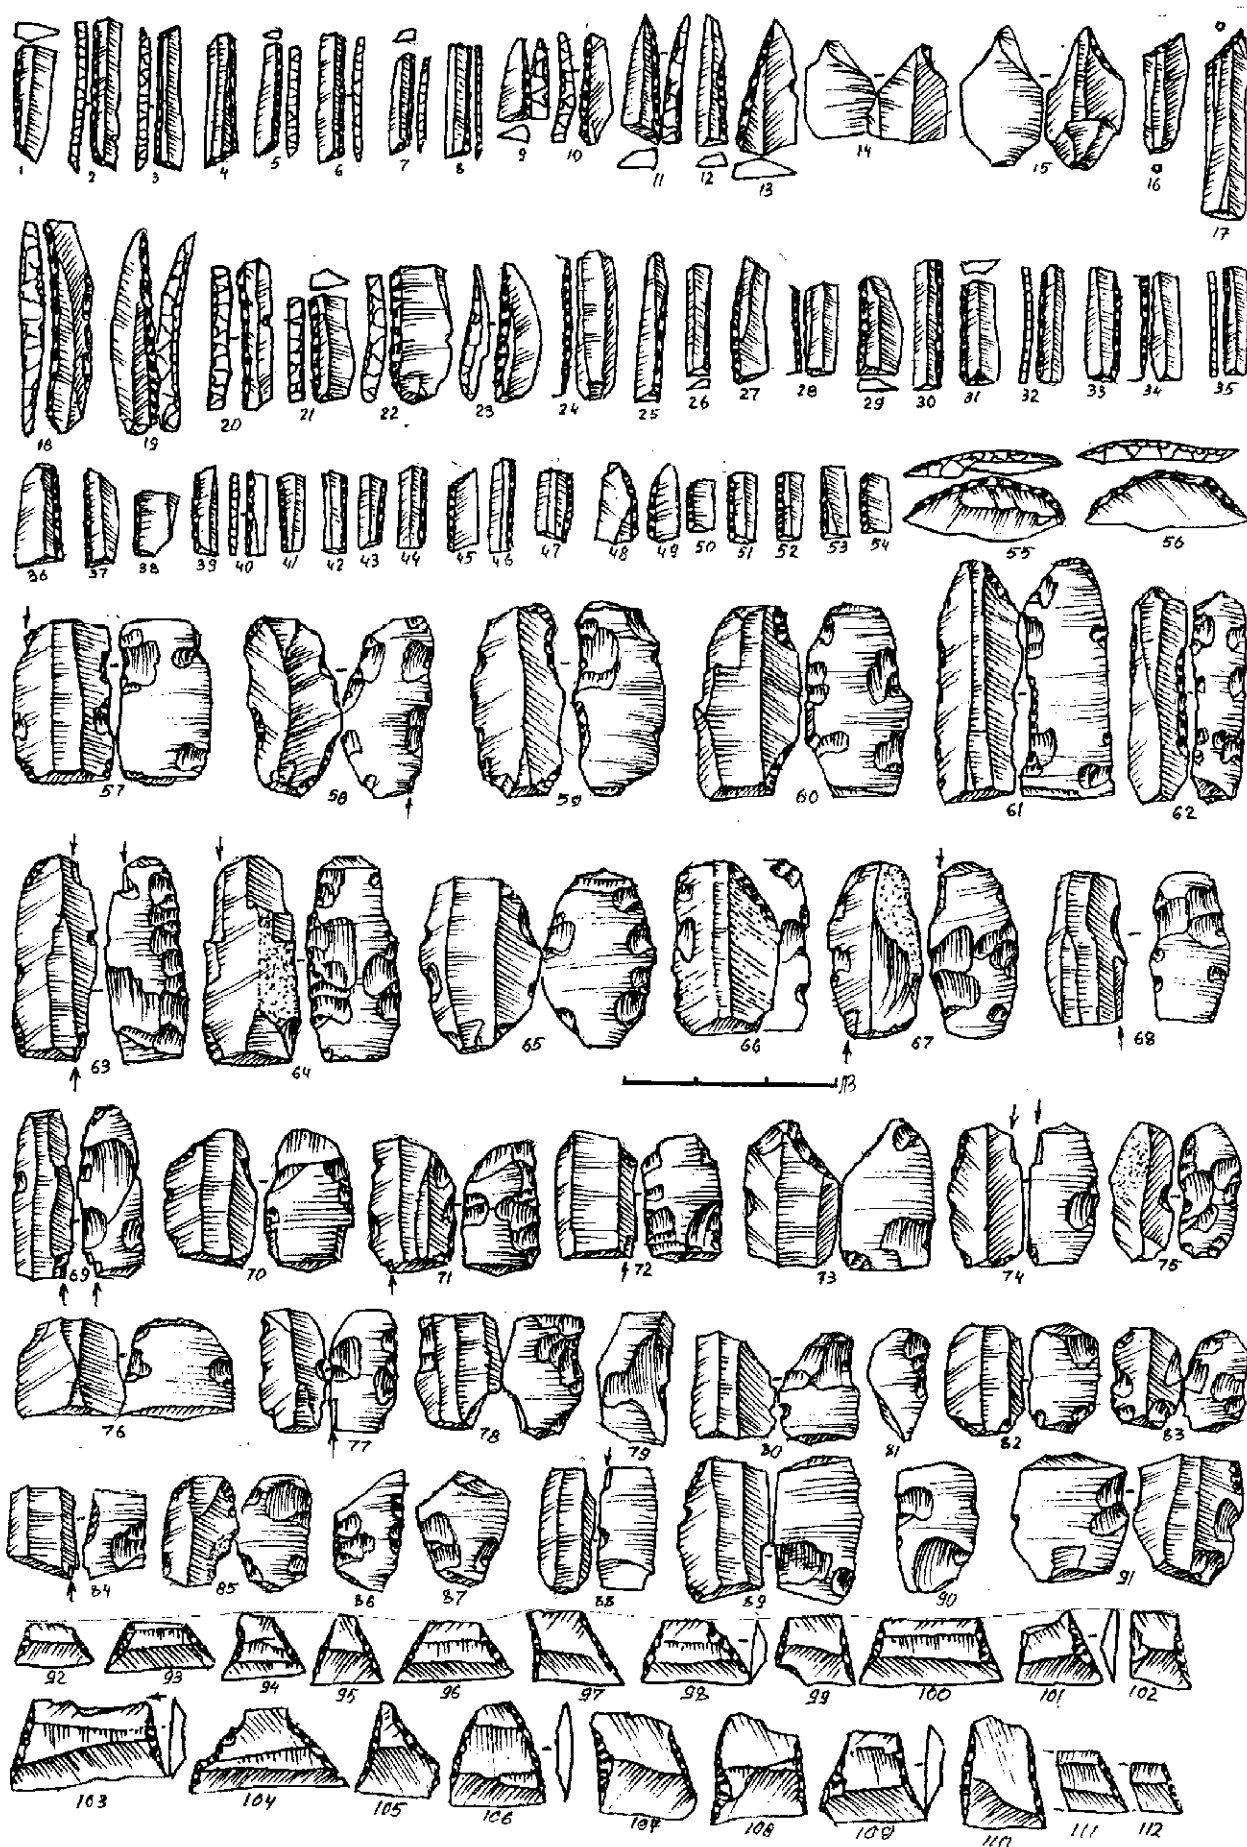 1 2 3 4 5 6 7 8 9 10 11 12 13 14 15 16 17
18 19 20 21 22 23 24 25 26 27 28 29 30 31 32 33 34 35
36 37 38 39 40 41 42 43 44 45 46 47 48 49 50 51 52 53 54 55 56
57 58 59 60 61 62
63 64 65 66 67 68
69 70 71 72 73 74 75
76 77 78 79 80 81 82 83
84 85 86 87 88 89 90 91
92 93 94 95 96 97 98 99 100 101 102
103 104 105 106 107 108 109 110 111 112